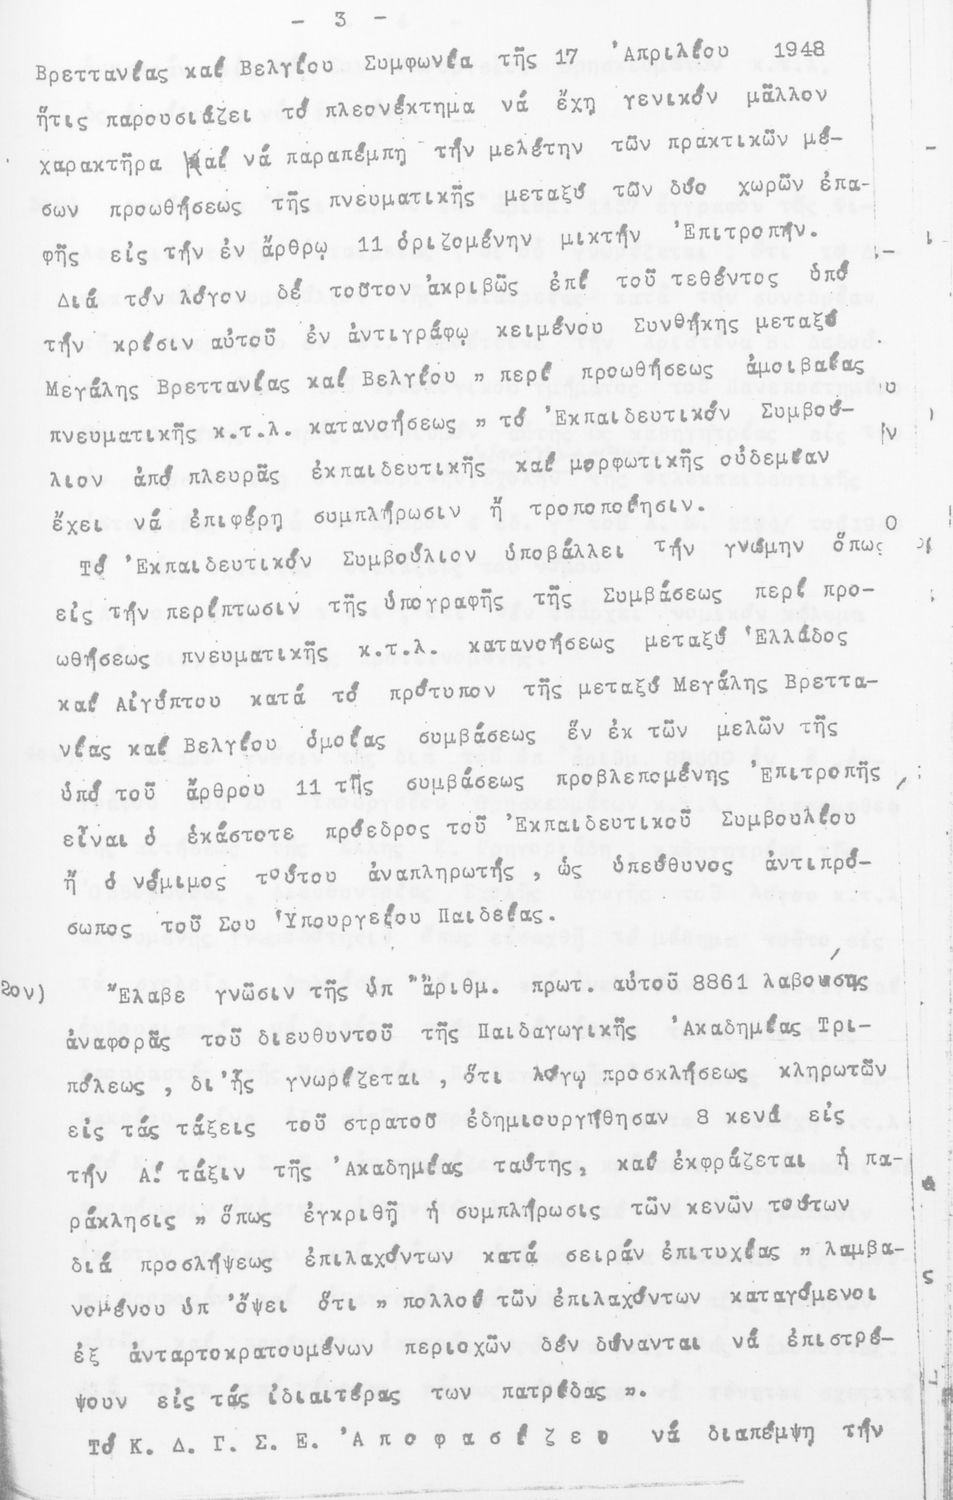 - 3 -
Βρεττανίας καί Βελγίου Συμφωνία τῆς 17 Ἀπριλίου 1948
ἥτις παρουσιάζει τό πλεονέκτημα νά ἔχῃ γενικόν μᾶλλον
χαρακτῆρα καί νά παραπέμπῃ τήν μελέτην τῶν πρακτικῶν μέ-
σων προωθήσεως τῆς πνευματικῆς μεταξύ τῶν δύο χωρῶν ἐπα-
φῆς εἰς τήν ἐν ἄρθρῳ 11 ὁριζομένην μικτήν Ἐπιτροπήν.
Διά τόν λόγον δέ τοῦτον ἀκριβῶς ἐπί τοῦ τεθέντος ὑπό
τήν κρίσιν αὐτοῦ ἐν ἀντιγράφῳ κειμένου Συνθήκης μεταξύ
Μεγάλης Βρεττανίας καί Βελγίου " περί προωθήσεως ἀμοιβαίας
πνευματικῆς κ.τ.λ. κατανοήσεως " τό Ἐκπαιδευτικόν Συμβού-
λιον ἀπό πλευρᾶς ἐκπαιδευτικῆς καί μορφωτικῆς οὐδεμίαν
ἔχει νά ἐπιφέρῃ συμπλήρωσιν ἤ τροποποίησιν.
Τό Ἐκπαιδευτικόν Συμβούλιον ὑποβάλλει τήν γνώμην ὅπως
εἰς τήν περίπτωσιν τῆς ὑπογραφῆς τῆς Συμβάσεως περί προ-
ωθήσεως πνευματικῆς κ.τ.λ. κατανοήσεως μεταξύ Ἑλλάδος
καί Αἰγύπτου κατά τό πρότυπον τῆς μεταξύ Μεγάλης Βρεττα-
νίας καί Βελγίου ὁμοίας συμβάσεως ἕν ἐκ τῶν μελῶν τῆς
ὑπό τοῦ ἄρθρου 11 τῆς συμβάσεως προβλεπομένης Ἐπιτροπῆς
εἶναι ὁ ἑκάστοτε πρόεδρος τοῦ Ἐκπαιδευτικοῦ Συμβουλίου
ἤ ὁ νόμιμος τούτου ἀναπληρωτής, ὡς ὑπεύθυνος ἀντιπρό-
σωπος τοῦ Σου Ὑπουργείου Παιδείας.
2ον) Ἔλαβε γνῶσιν τῆς ὑπ' ἄριθμ. πρωτ. αὐτοῦ 8861 λαβούσης
ἀναφορᾶς τοῦ διευθυντοῦ τῆς Παιδαγωγικῆς Ἀκαδημίας Τρι-
πόλεως, δι' ἧς γνωρίζεται, ὅτι λόγῳ προσκλήσεως κληρωτῶν
εἰς τάς τάξεις τοῦ στρατοῦ ἐδημιουργήθησαν 8 κενά εἰς
τήν Α! τάξιν τῆς Ἀκαδημίας ταύτης, καί ἐκφράζεται ἡ πα-
ράκλησις " ὅπως ἐγκριθῇ ἡ συμπλήρωσις τῶν κενῶν τούτων
διά προσλήψεως ἐπιλαχόντων κατά σειράν ἐπιτυχίας " λαμβα-
νομένου ὑπ' ὄψει ὅτι " πολλοί τῶν ἐπιλαχόντων καταγόμενοι
ἐξ ἀνταρτοκρατουμένων περιοχῶν δέν δύνανται νά ἐπιστρέ-
ψουν εἰς τάς ἰδιαιτέρας των πατρίδας ".
Τό Κ. Δ. Γ. Σ. Ε. Ἀποφασίζει νά διαπέμψῃ τήν